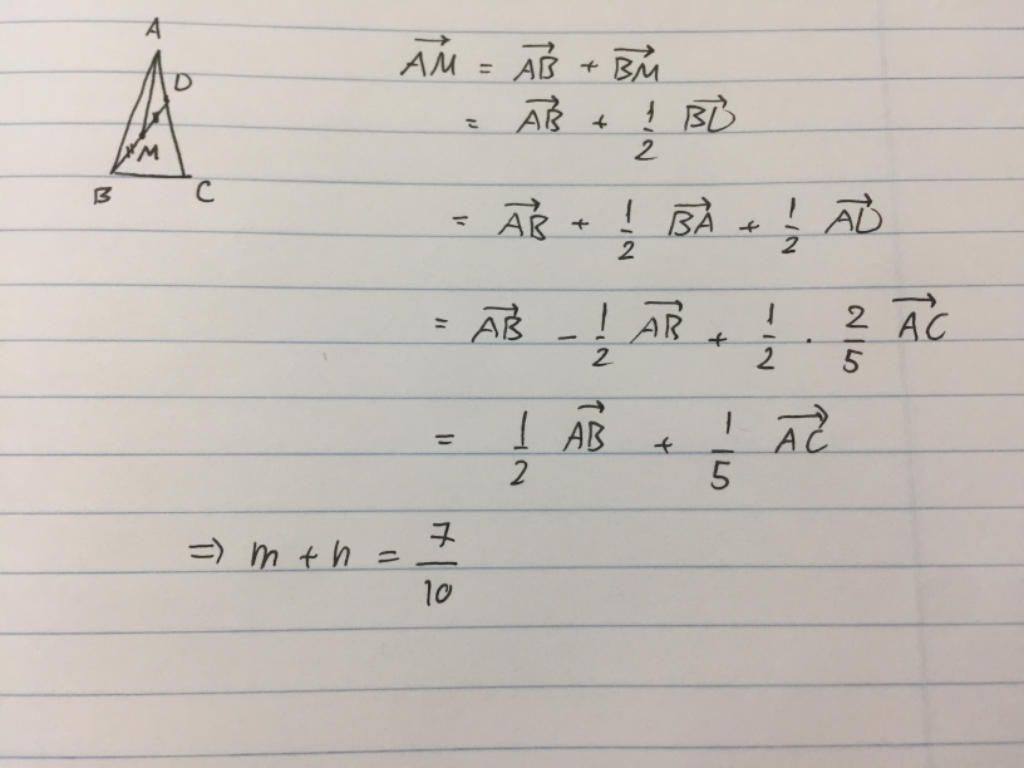 A
D
M
B C
$\overrightarrow{AM} = \overrightarrow{AB} + \overrightarrow{BM}$
$= \overrightarrow{AB} + \frac{1}{2} \overrightarrow{BD}$
$= \overrightarrow{AB} + \frac{1}{2} \overrightarrow{BA} + \frac{1}{2} \overrightarrow{AD}$
$= \overrightarrow{AB} - \frac{1}{2} \overrightarrow{AB} + \frac{1}{2} \cdot \frac{2}{5} \overrightarrow{AC}$
$= \frac{1}{2} \overrightarrow{AB} + \frac{1}{5} \overrightarrow{AC}$
$\Rightarrow m + n = \frac{7}{10}$